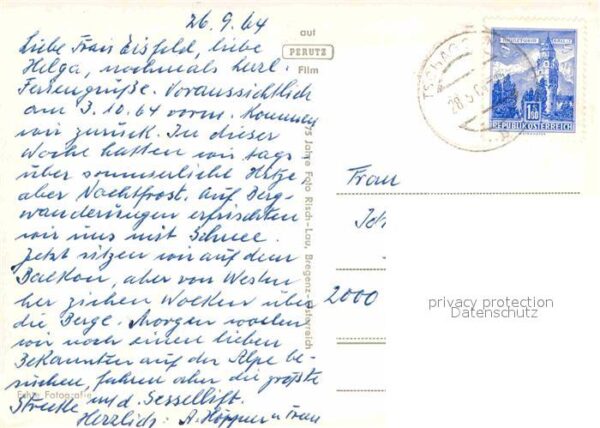 26.9.64
Liebe Frau Eisfeld, liebe
Helga, nochmals herzl.
Feriengrüße. Voraussichtlich
am 3.10.64 vorm. kommen
wir zurück. In dieser
Woche hatten wir tags
über sommerliche Hitze
aber Nachtfrost. Auf Berg-
wanderungen erfrischten
wir uns mit Schnee.
Jetzt sitzen wir auf dem
Balkon, aber von Westen
her ziehen Wolken über
die Berge. Morgen wollen
wir noch einen lieben
Bekannten auf der Alpe be-
suchen, fahren aber die größte
Strecke m/d. Sessellift.
Herzlich: A. Höppner u. Frau
auf
PERUTZ
Film
75 Jahre Foto Risch-Lau, Bregenz-Österreich
Echte Fotografie
28.9.64
1.60
REPUBLIK ÖSTERREICH
Frau
2000
privacy protection
Datenschutz